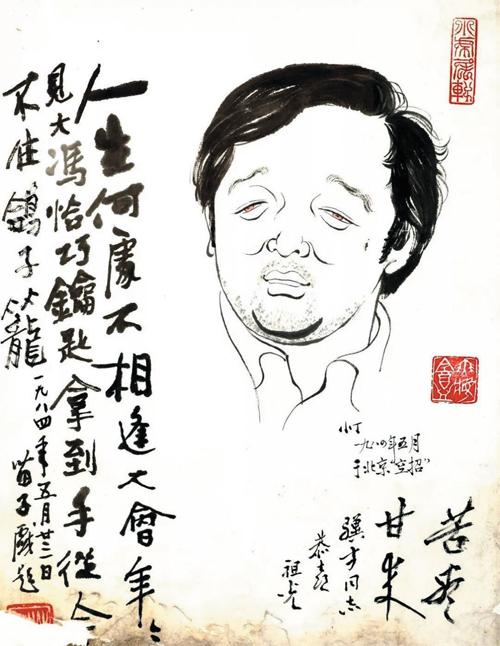 苦尽
甘来
骥才同志
恭喜
祖光
小丁
一九八四年五月
于北京"空招"
人生何處不相逢大會年々
見大馮恰巧鑰匙拿到手從今
不住鴿子籠
一九八四年五月廿二日
苗子戲題